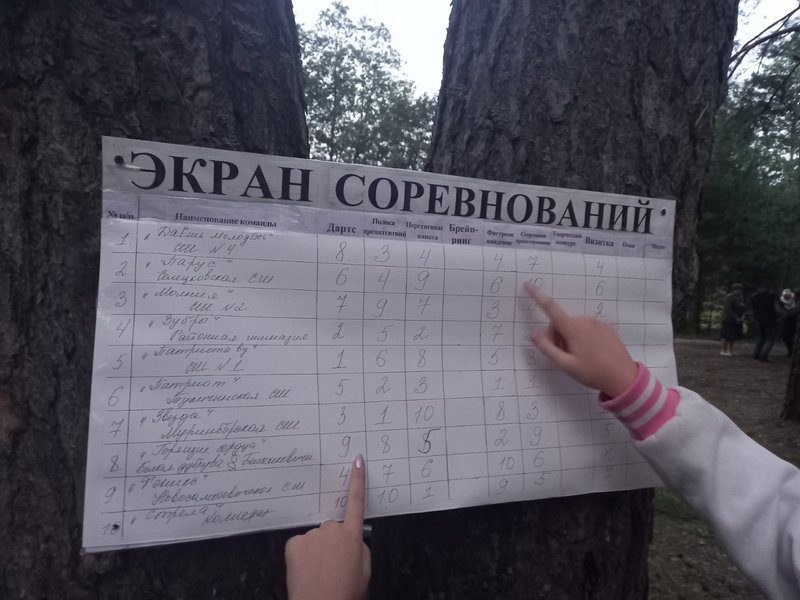 ЭКРАН СОРЕВНОВАНИЙ
№ п/п Наименование команды Дартс Полоса препятствий Перетягивание каната Брейн-ринг Фигурное вождение Спортивное ориентирование Творческий конкурс Визитка Очки Место
1 "Даёшь молодёжь" 8 3 4 4 7 4
СШ N4
2 "Парус" 6 4 9 6 6
СШ
3 "Молния" 7 9 7 3 2
СШ N2
4 "Зубры" 2 5 2 7
Районная гимназия
5 "Патриоты by" 1 6 8 5
СШ N1
6 "Патриот" 5 2 3 1
СШ
7 "Звезда" 3 1 10 8 3
СШ
8 "Горящие сердца" 9 8 5 2 9
9 "Феникс" 4 7 6 10 6
СШ
10 "Стрела" 10 10 1 9 5
колледж